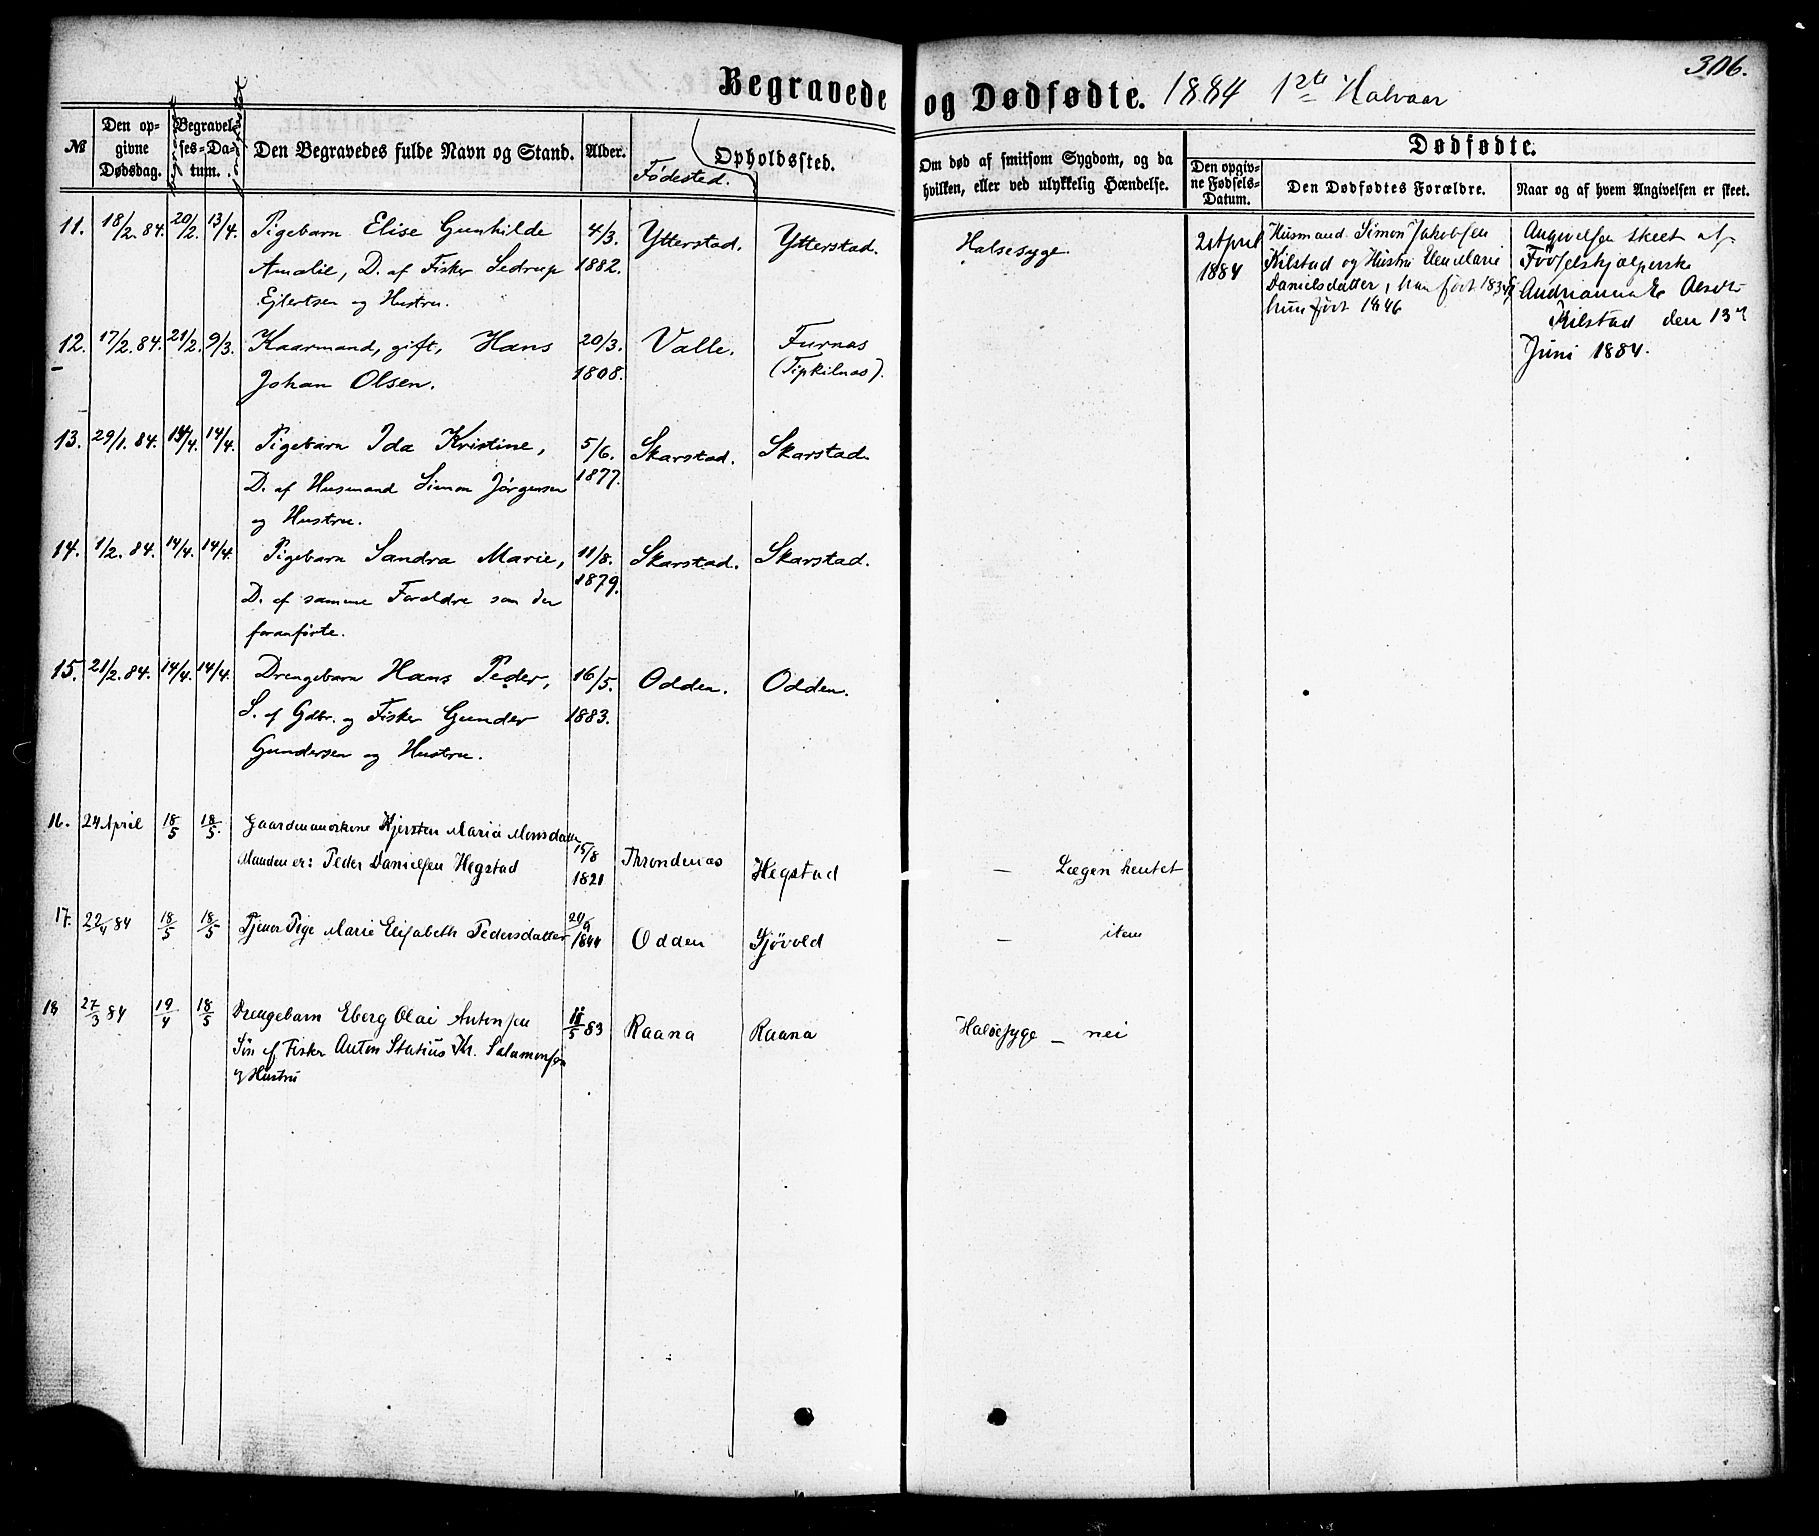 306.
Begravede og Dødfødte. 1884 1ste Halvaar
№
Den opgivne Dødsdag.
Begravelses-Datum.
Den Begravedes fulde Navn og Stand.
Alder.
Fødested.
Opholdssted.
Om død af smitsom Sygdom, og da
hvilken, eller ved ulykkelig Hændelse.
Dødfødte.
Den opgivne Fødsels-Datum.
Den Dødfødtes Forældre.
Naar og af hvem Angivelsen er skeet.
11. 18/2. 84. 20/2. 13/4. Pigebarn Elise Gunhilde 4/3. Ytterstad. Ytterstad. Halsesyge
Amalie, D. af Fisker Sedrup 1882.
Ejlertsen og Hustru.
2 April
1884
Husmand Simon Jakobsen
Kilstad og Hustru Marie
Danielsdatter, han født 183
hun født 1846
Angivelsen skeet af
Fødselshjælperske
Andrianna
Kilstad den 13de
Juni 1884.
12. 17/2. 84. 21/2. 9/3. Kaarmand, gift, Hans 20/3. Valle. Furnas
Johan Olsen. 1808. (Tipkilnas).
13. 29/1. 84. 14/4. 14/4. Pigebarn Ida Kristine, 5/6. Skarstad. Skarstad.
D. af Husmand Simon Jørgensen 1877.
og Hustru.
14. 1/2. 84. 14/4. 14/4. Pigebarn Sandra Marie, 11/8. Skarstad. Skarstad.
D. af samme Forældre som den 1879.
foranførte.
15. 21/2. 84. 14/4. 14/4. Drengebarn Hans Peder, 16/5. Odden. Odden.
S. af Gdbr. og Fisker Gunder 1883.
Gundersen og Hustru.
16. 24 April 18/5 18/5. Gaardmandskone Kjersten Maria Monsdatter 15/8
Manden er: Peder Danielsen Hegstad 1821 Throndenas Hegstad — Lægen hentet
17. 22/4 84 18/5 18/5 Tjener Pige Marie Elisabeth Pedersdatter 1844 Odden Kjøvold — item
18 27/3 84 19/4 18/5 Drengebarn Eberg Olai Antonsen 11/5 83 Raana Raana Halsesyge — nei
Søn af Fisker Anton Statius Kr. Salamonsen
og Hustru